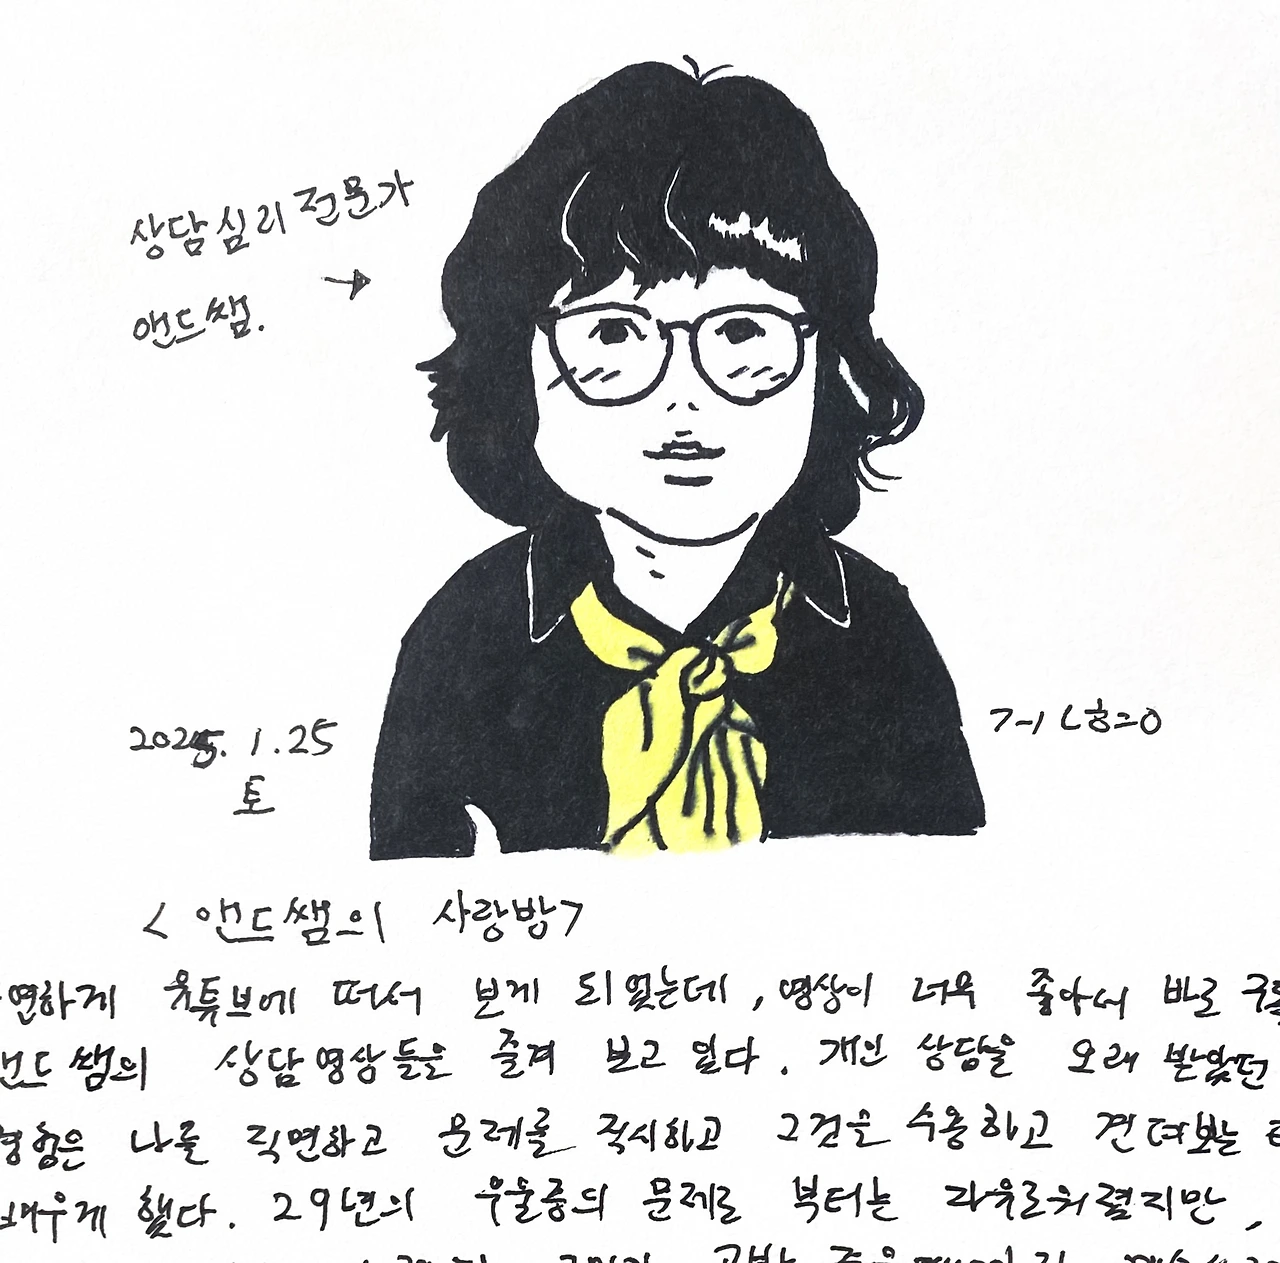 상담심리 전문가
→
앤드쌤.
2025. 1. 25
토
< 앤드쌤의 사랑방>
연하게 유튜브에 떠서 보게 되었는데, 영상이 너무 좋아서 바로 구독
앤드쌤의 상담영상들을 즐겨 보고 있다. 개인 상담을 오래 받았던
경험은 나를 직면하고 문제를 직시하고 그것을 수용하고 견뎌보는
배우게 했다. 29년의 우울증의 문제로 부터는 자유로워졌지만,